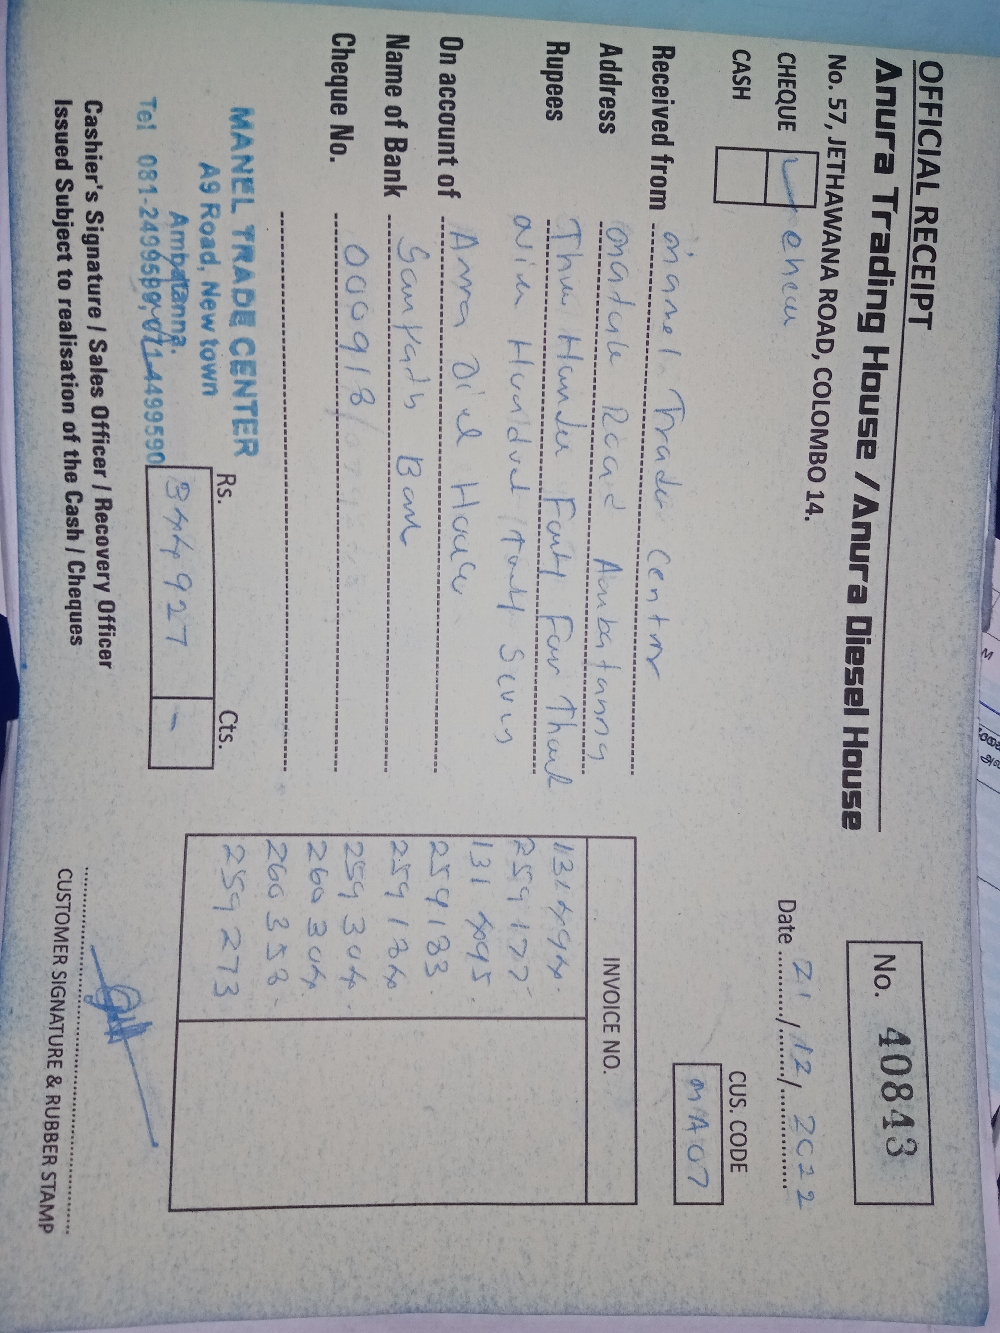 OFFICIAL RECEIPT
Anura Trading House / Anura Diesel House
No. 57, JETHAWANA ROAD, COLOMBO 14.
No. 40843
CHEQUE
CASH
Date 21/12/2022
CUS. CODE
MA07
Received from Manel Trade Center
Address Matale Road Ambatanna
Rupees Three Hundred Forty Four Thousand
Nine Hundred Twenty Seven
On account of Anura Diesel House
Name of Bank Sampath Bank
Cheque No. 000918/
INVOICE NO.
131494.
259177
131495.
259183.
259184.
259304.
260304.
260358.
259273
MANEL TRADE CENTER
A9 Road, New town
Ambatanna.
Tel 081-2499590, 071-4499590
Rs. Cts.
344927 -
Cashier's Signature / Sales Officer / Recovery Officer
Issued Subject to realisation of the Cash / Cheques
CUSTOMER SIGNATURE & RUBBER STAMP